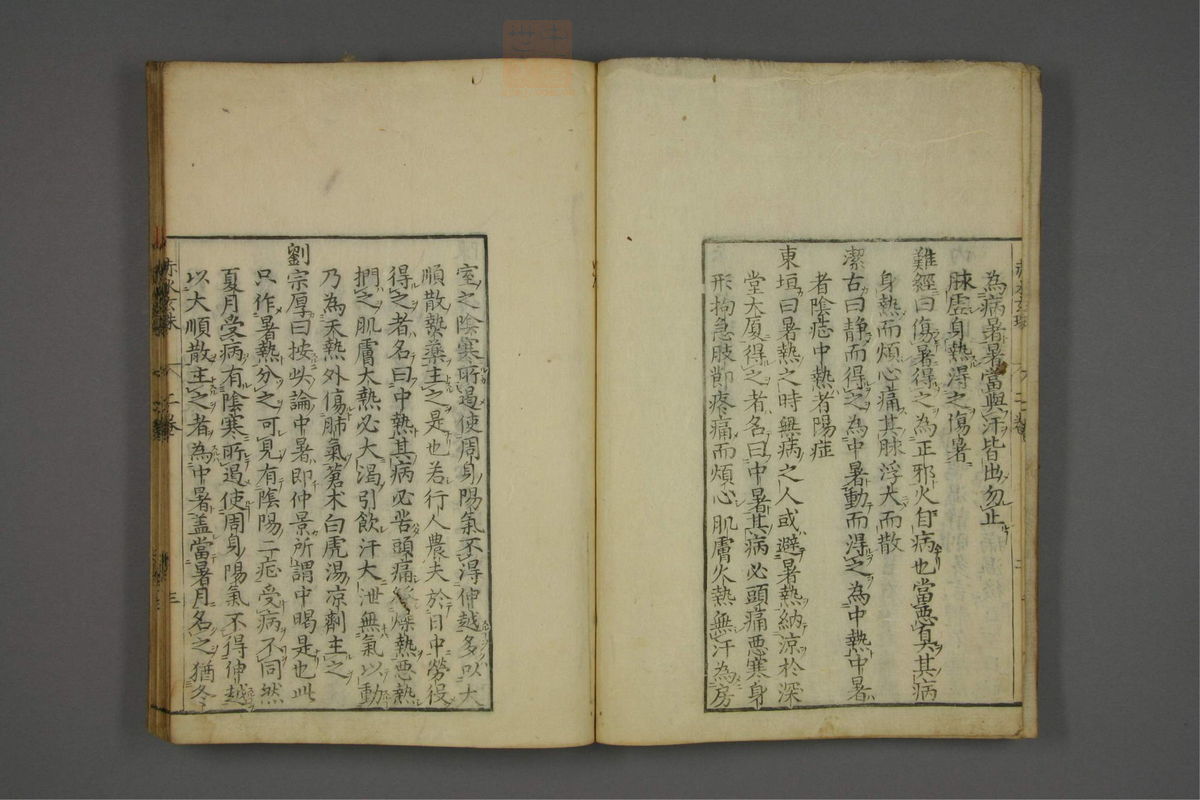 為病暑暑當與汗皆出勿止
脉虛身熱得之傷暑
難經曰傷暑得之為正邪火自病也當惡臭其病
身熱而煩心痛其脉浮大而散
潔古曰静而得之為中暑動而得之為中熱中暑
者陰症中熱者陽症
東垣曰暑熱之時無病之人或避暑熱納凉於深
堂大厦得之者名曰中暑其病必頭痛惡寒身
形拘急肢節疼痛而煩心肌膚火熱無汗為房
室之陰寒所遏使周身陽氣不得伸越多以大
順散熱藥主之是也若行人農夫於日中勞役
得之者名曰中熱其病必苦頭痛燥熱惡熱
捫之肌膚大熱必大渴引飲汗大泄無氣以動
乃為天熱外傷肺氣蒼术白虎湯凉劑主之
劉宗厚曰按此論中暑即仲景所謂中暍是也此
只作暑熱分之可見有陰陽二症受病不同然
夏月受病有陰寒所遏使周身陽氣不得伸越
以大順散主之者為中暑盖當暑月名之猶冬
赤水玄珠 二卷 三